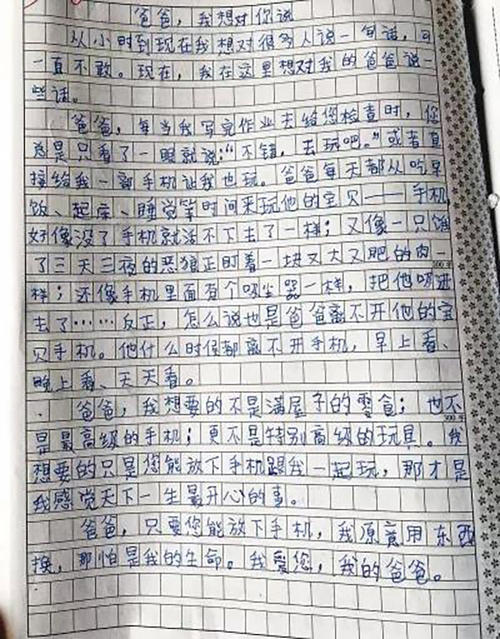 爸爸，我想对你说
从小时到现在我想对很多人说一句话，可
一直不敢。现在，我在这里想对我的爸爸说一
些话。
爸爸，每当我写完作业去给您检查时，您
总是只看了一眼就说："不错，去玩吧。"或者直
接给我一部手机让我也玩。爸爸每天都从吃早
饭、起床、睡觉等时间来玩他的宝贝——手机
好像没了手机就活不下去了一样；又像一只饿
了三天三夜的恶狼正盯着一块又大又肥的肉一
样；还像手机里面有个吸尘器一样，把他吸进
去了……反正，怎么说也是爸爸离不开他的宝
贝手机。他什么时候都离不开手机，早上看、
晚上看、天天看。
爸爸，我想要的不是满屋子的零食；也不
是最高级的手机；更不是特别高级的玩具。我
想要的只是您能放下手机跟我一起玩，那才是
我感觉天下一生最开心的事。
爸爸，只要您能放下手机，我原意用东西
换，那怕是我的生命。我爱您，我的爸爸。